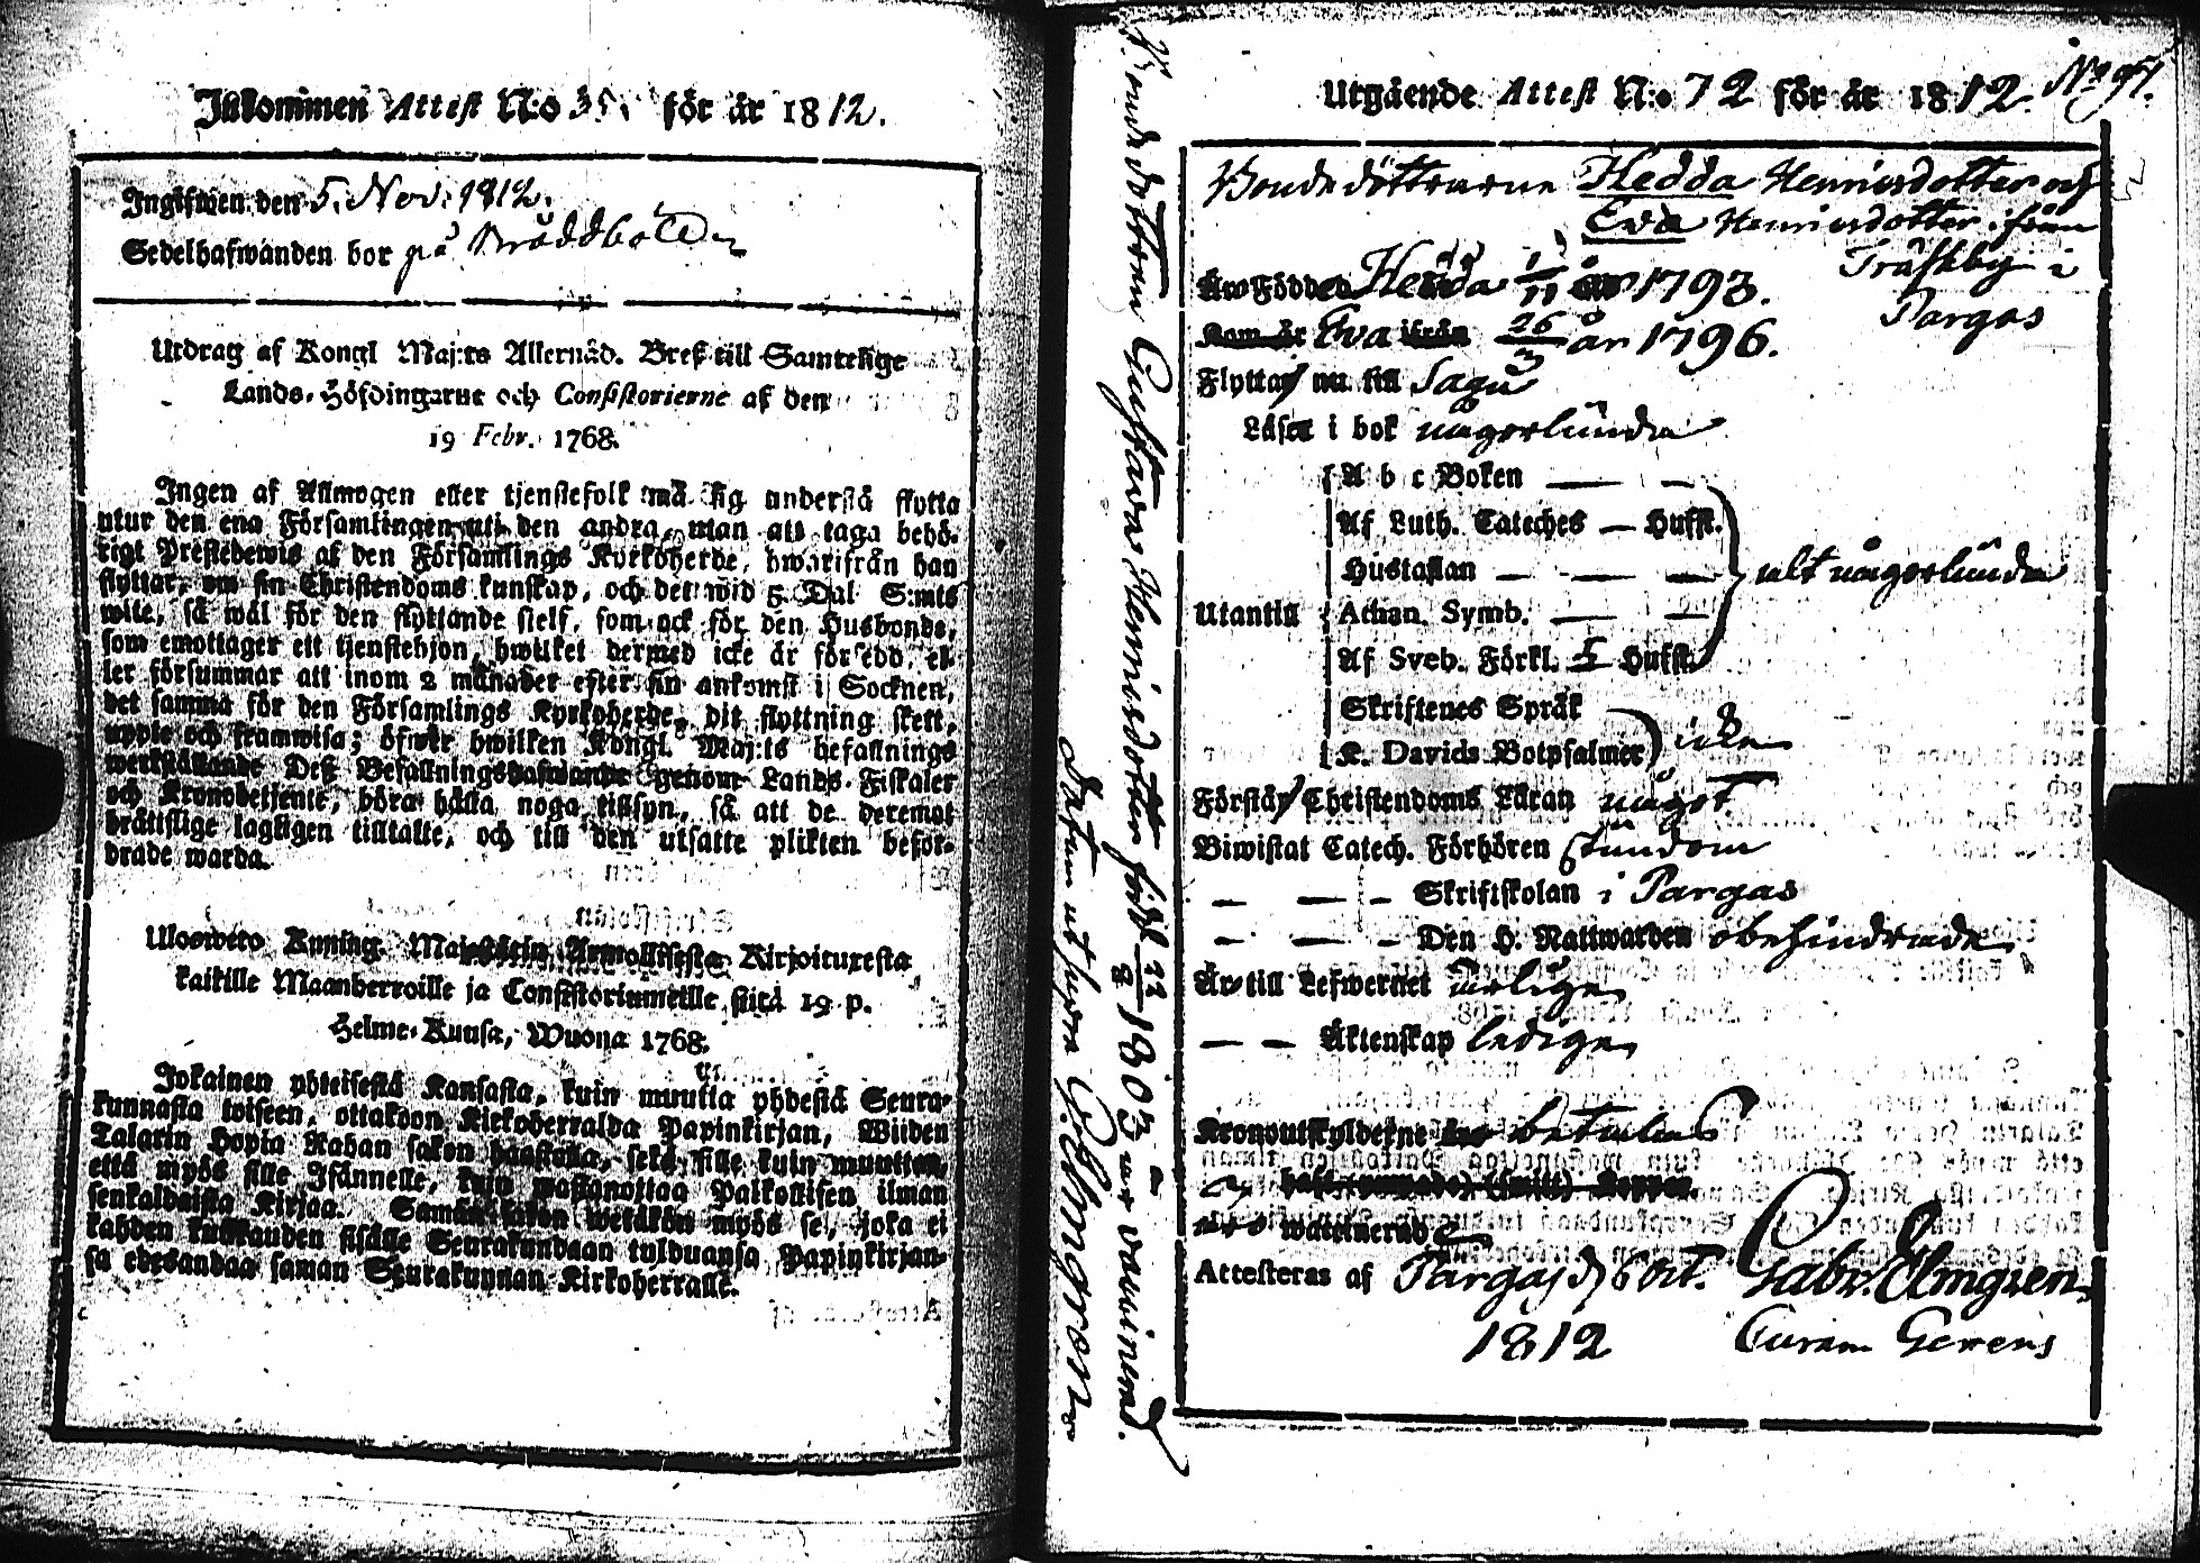 Inkommen Attest N:o 35. för år 1812.
Ingifwen den 5. Nov. 1812.
Sedelhafwanden bor på
Utdrag af Kongl Maj:ts Allernåd. Bref till Samtelige
Lands-Höfdingarne och Consistorierne af den
19 Febr. 1768.
Ingen af Allmogen eller tjenstefolk må sig understå flytta
utur den ena Församlingen uti den andra, utan att taga behö-
rigt Prestebewis af den Församlings Kyrkoherde, hwarifrån han
flyttar, om sin Christendoms kunskap, och det wid 5. Dal S:mts
wite, så wäl för den flyttande sielf, som ock för den Husbonde,
som emottager ett tjenstehjon, hwilket dermed icke är försedd, el-
ler försummar att inom 2 månader efter sin ankomst i Socknen,
det samma för den Församlings Kyrkoherde, dit flyttning skett,
uppte och framwisa; öfwer hwilken Kongl. Maj:ts befallnings
werkställande Deß Befallningshafwande genom Lands-Fiskaler
och Kronobetjente, böra hålla noga tillsyn, så att de deremot
brättslige lagligen tilltalte, och till den utsatte plikten befor-
drade warda.
Ulosweto Kuning. Majestätin Armollisesta Kirjoituxesta
kaikille Maanherroille ja Consistoriumeille, siitä 19 p.
Helme-Kuusa, Wuona 1768.
Jokainen yhteisestä Kansasta, kuin muutta yhdestä Seura-
kunnasta toiseen, ottakoon Kirkoherralda Papinkirjan, Wiiden
Talarin Hopia Rahan sakon haastolla, sekä sille kuin muuttaa,
että myös sille Isännelle, kuin wastanottaa Palkollisen ilman
senkaldaista Kirjaa. Saman sakon wetäkön myös se, joka ei
kahden kuukauden sisälle Seurakundaan tulduansa Papinkirjan-
sa edesandaa saman Seurakunnan Kirkoherralle.
Bondedottren Gustava Henricsdotter född 1803 är vaccinerad.
Datum ut supra G. Elmgren
No 91.
Utgående Attest N:o 72 för år 1812.
Bondedöttrarne Hedda Henricsdotter och
Eva Henricsdotter ifrån
Träskby i
Pargas
Äro Födde Hedda 1/11 år 1793.
Kom år Eva ifrån 26/3 år 1796.
Flyttar nu till Sagu
Läsa i bok någorlunda
A b c Boken
Af Luth. Cateches — Hufst.
Hustaflan
Utantill Athan. Symb. alt någorlunda
Af Sveb. Förkl. 5 Hufst.
Skriftenes Språk
K. Davids Botpsalmer icke
Förstår Christendoms Läran något
Biwistat Catech. Förhören stundom
— — — Skriftskolan i Pargas
— — — Den H. Nattwarden obehindrade
Är till Lefwernet ärlige
— — Äktenskap ledige
Kronoutskylderne äro betalas
äro waccinerade
Attesteras af Pargas d 6 Oct. Gabr. Elmgren
1812 Curam Gerens